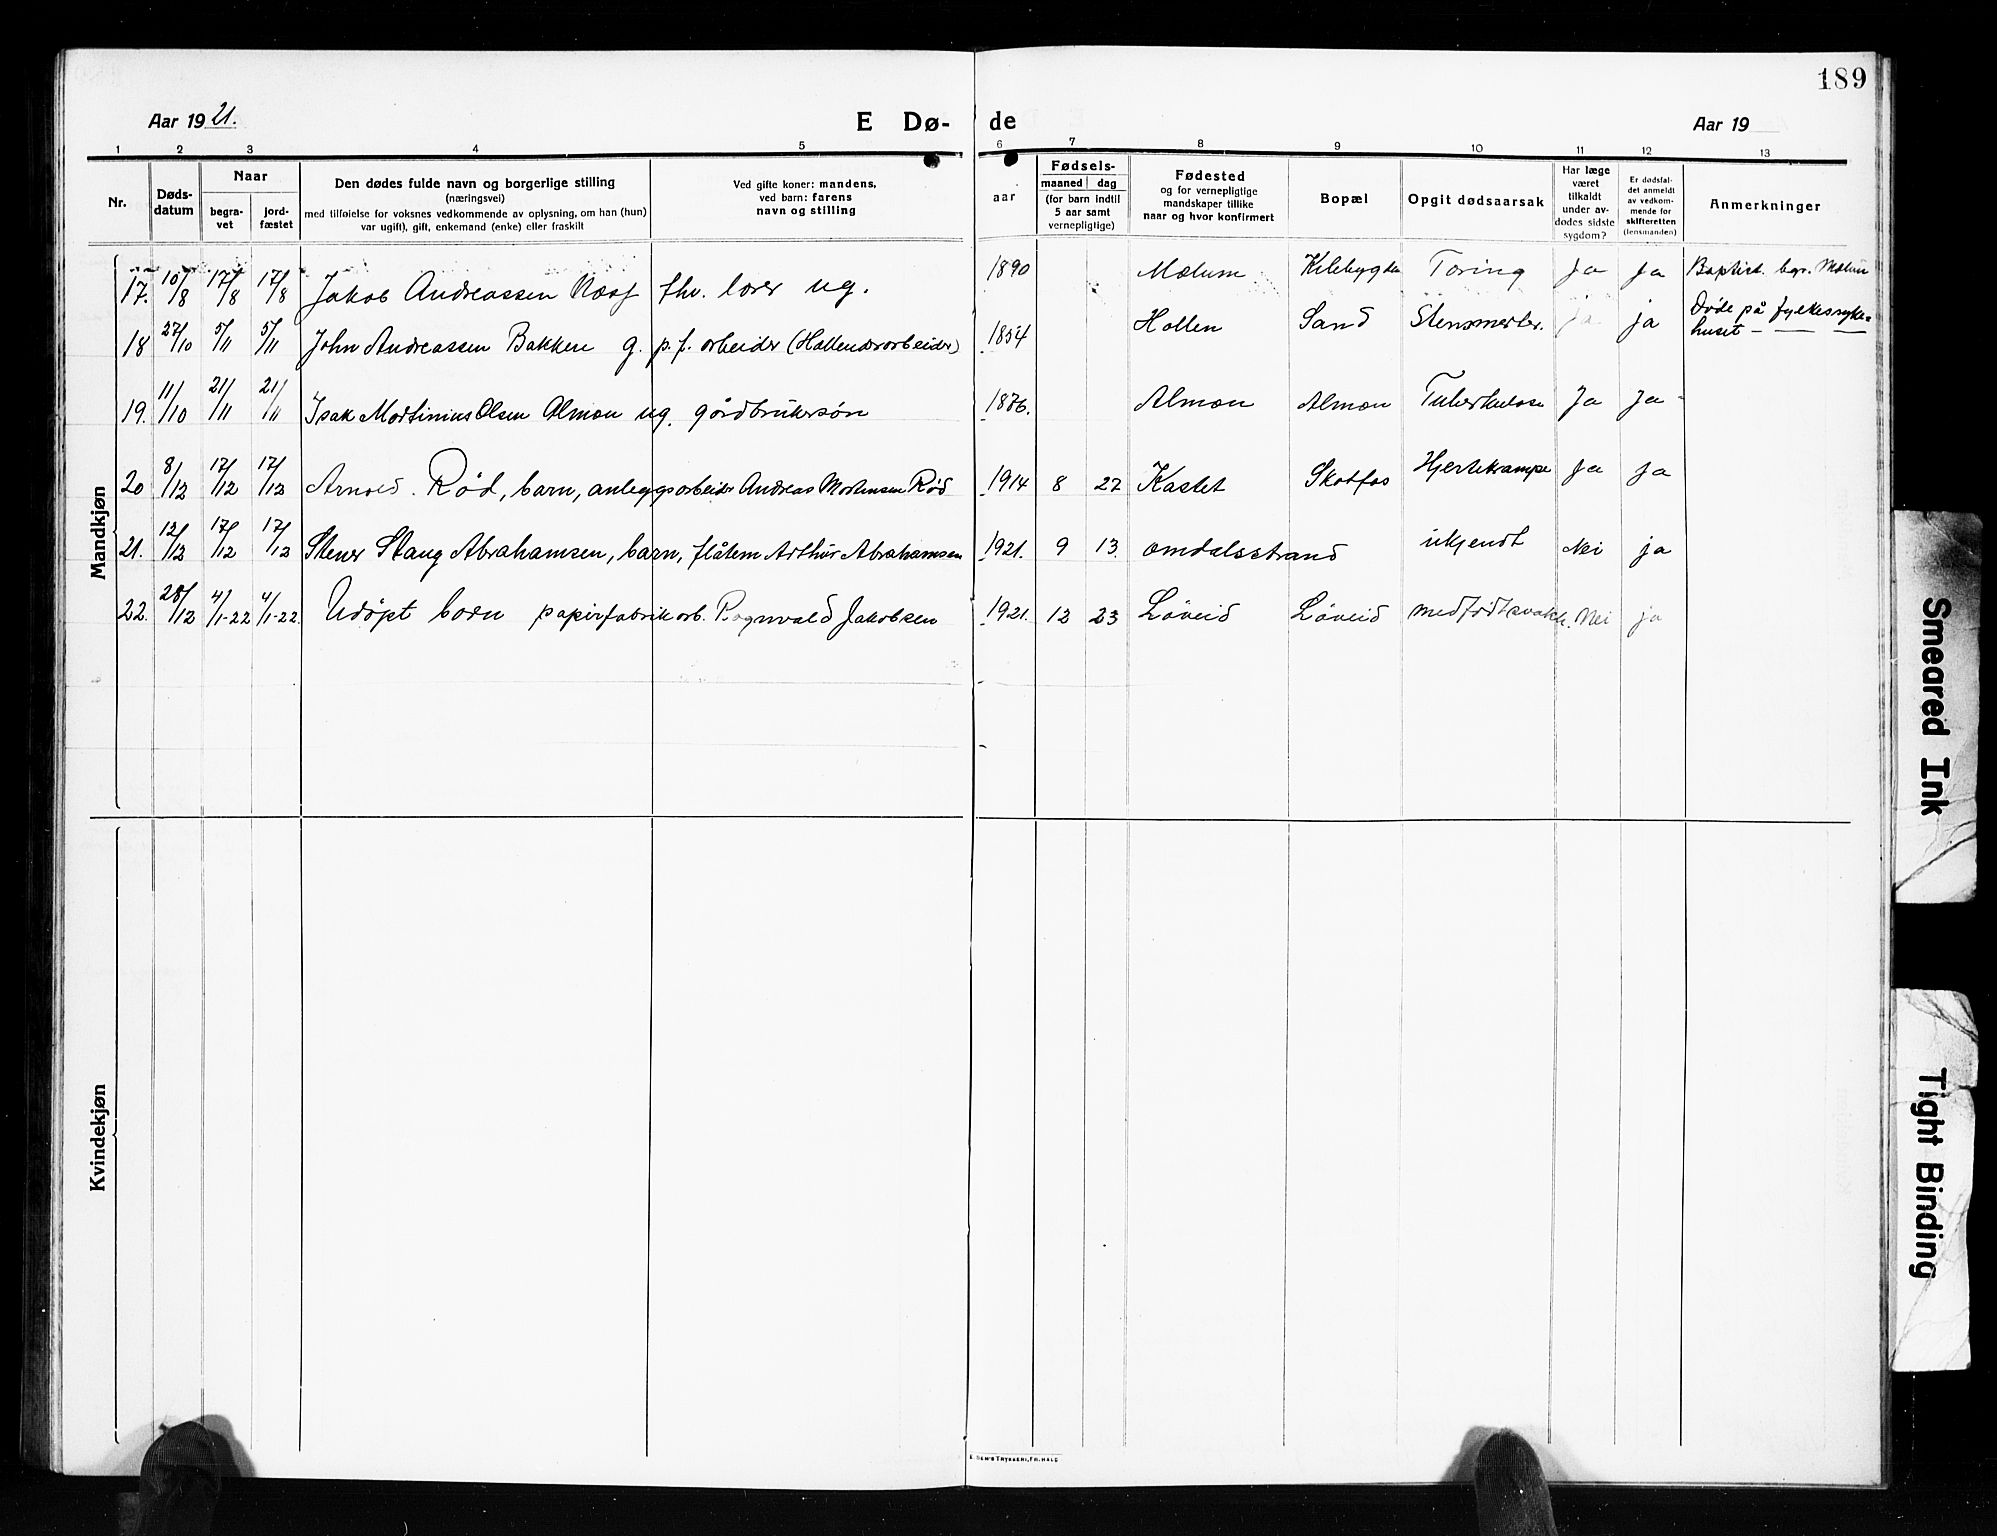 189
Aar 19 21.
E Dø- de
Aar 19
1 2 3 4 5 6 7 8 9 10 11 12 13
Nr.
Døds-
datum
Naar
begra-
vet
jord-
fæstet
Den dødes fulde navn og borgerlige stilling
(næringsvei)
med tilføielse for voksnes vedkommende av oplysning, om han (hun)
var ugift), gift, enkemand (enke) eller fraskilt
Ved gifte koner: mandens,
ved barn: farens
navn og stilling
aar
Fødsels-
maaned dag
(for barn indtil
5 aar samt
vernepligtige)
Fødested
og for vernepligtige
mandskaper tillike
naar og hvor konfirmert
Bopæl
Opgit dødsaarsak
Har læge
været
tilkaldt
under av-
dødes sidste
sygdom?
Er dødsfal-
det anmeldt
av vedkom-
mende for
skifteretten
(lensmanden)
Anmerkninger
Mandkjøn
17. 10/8 17/8 17/8 Jakob Andreassen fhv. lærer ug. 1890 Mælum Kilebygda Tæring Ja Ja Baptist. begr. Mælum
18 27/10 5/11 5/11 John Andreassen Bakken g. p. f. arbeider (Hollenderarbeider) 1854 Hollen Sand ja ja Døde på fylkessyke-
huset
19. 11/10 21/11 21/11 Isak Martinius Olsen Almon ug. gårdbrukersøn 1876. Almon Almon Tuberkulose Ja Ja
20 8/12 17/12 17/12 Arnold Rød, barn, anleggsarbeider Andreas Mortensen Rød 1914 8 27 Kastet Skotfos Hjertekrampe Ja Ja
21. 12/12 17/12 17/12 Stener Stang Abrahamsen, barn, flåtem Arthur Abrahamsen 1921. 9 13. Omdalsstrand ukjendt Nei ja
22. 28/12 4/1-22 4/1-22. Udøpt barn papirfabrikarb. Ragnvald Jakobsen 1921. 12 23 Løveid Løveid medfødt svakh. Nei ja
Kvindekjøn
Smeared Ink
Tight Binding